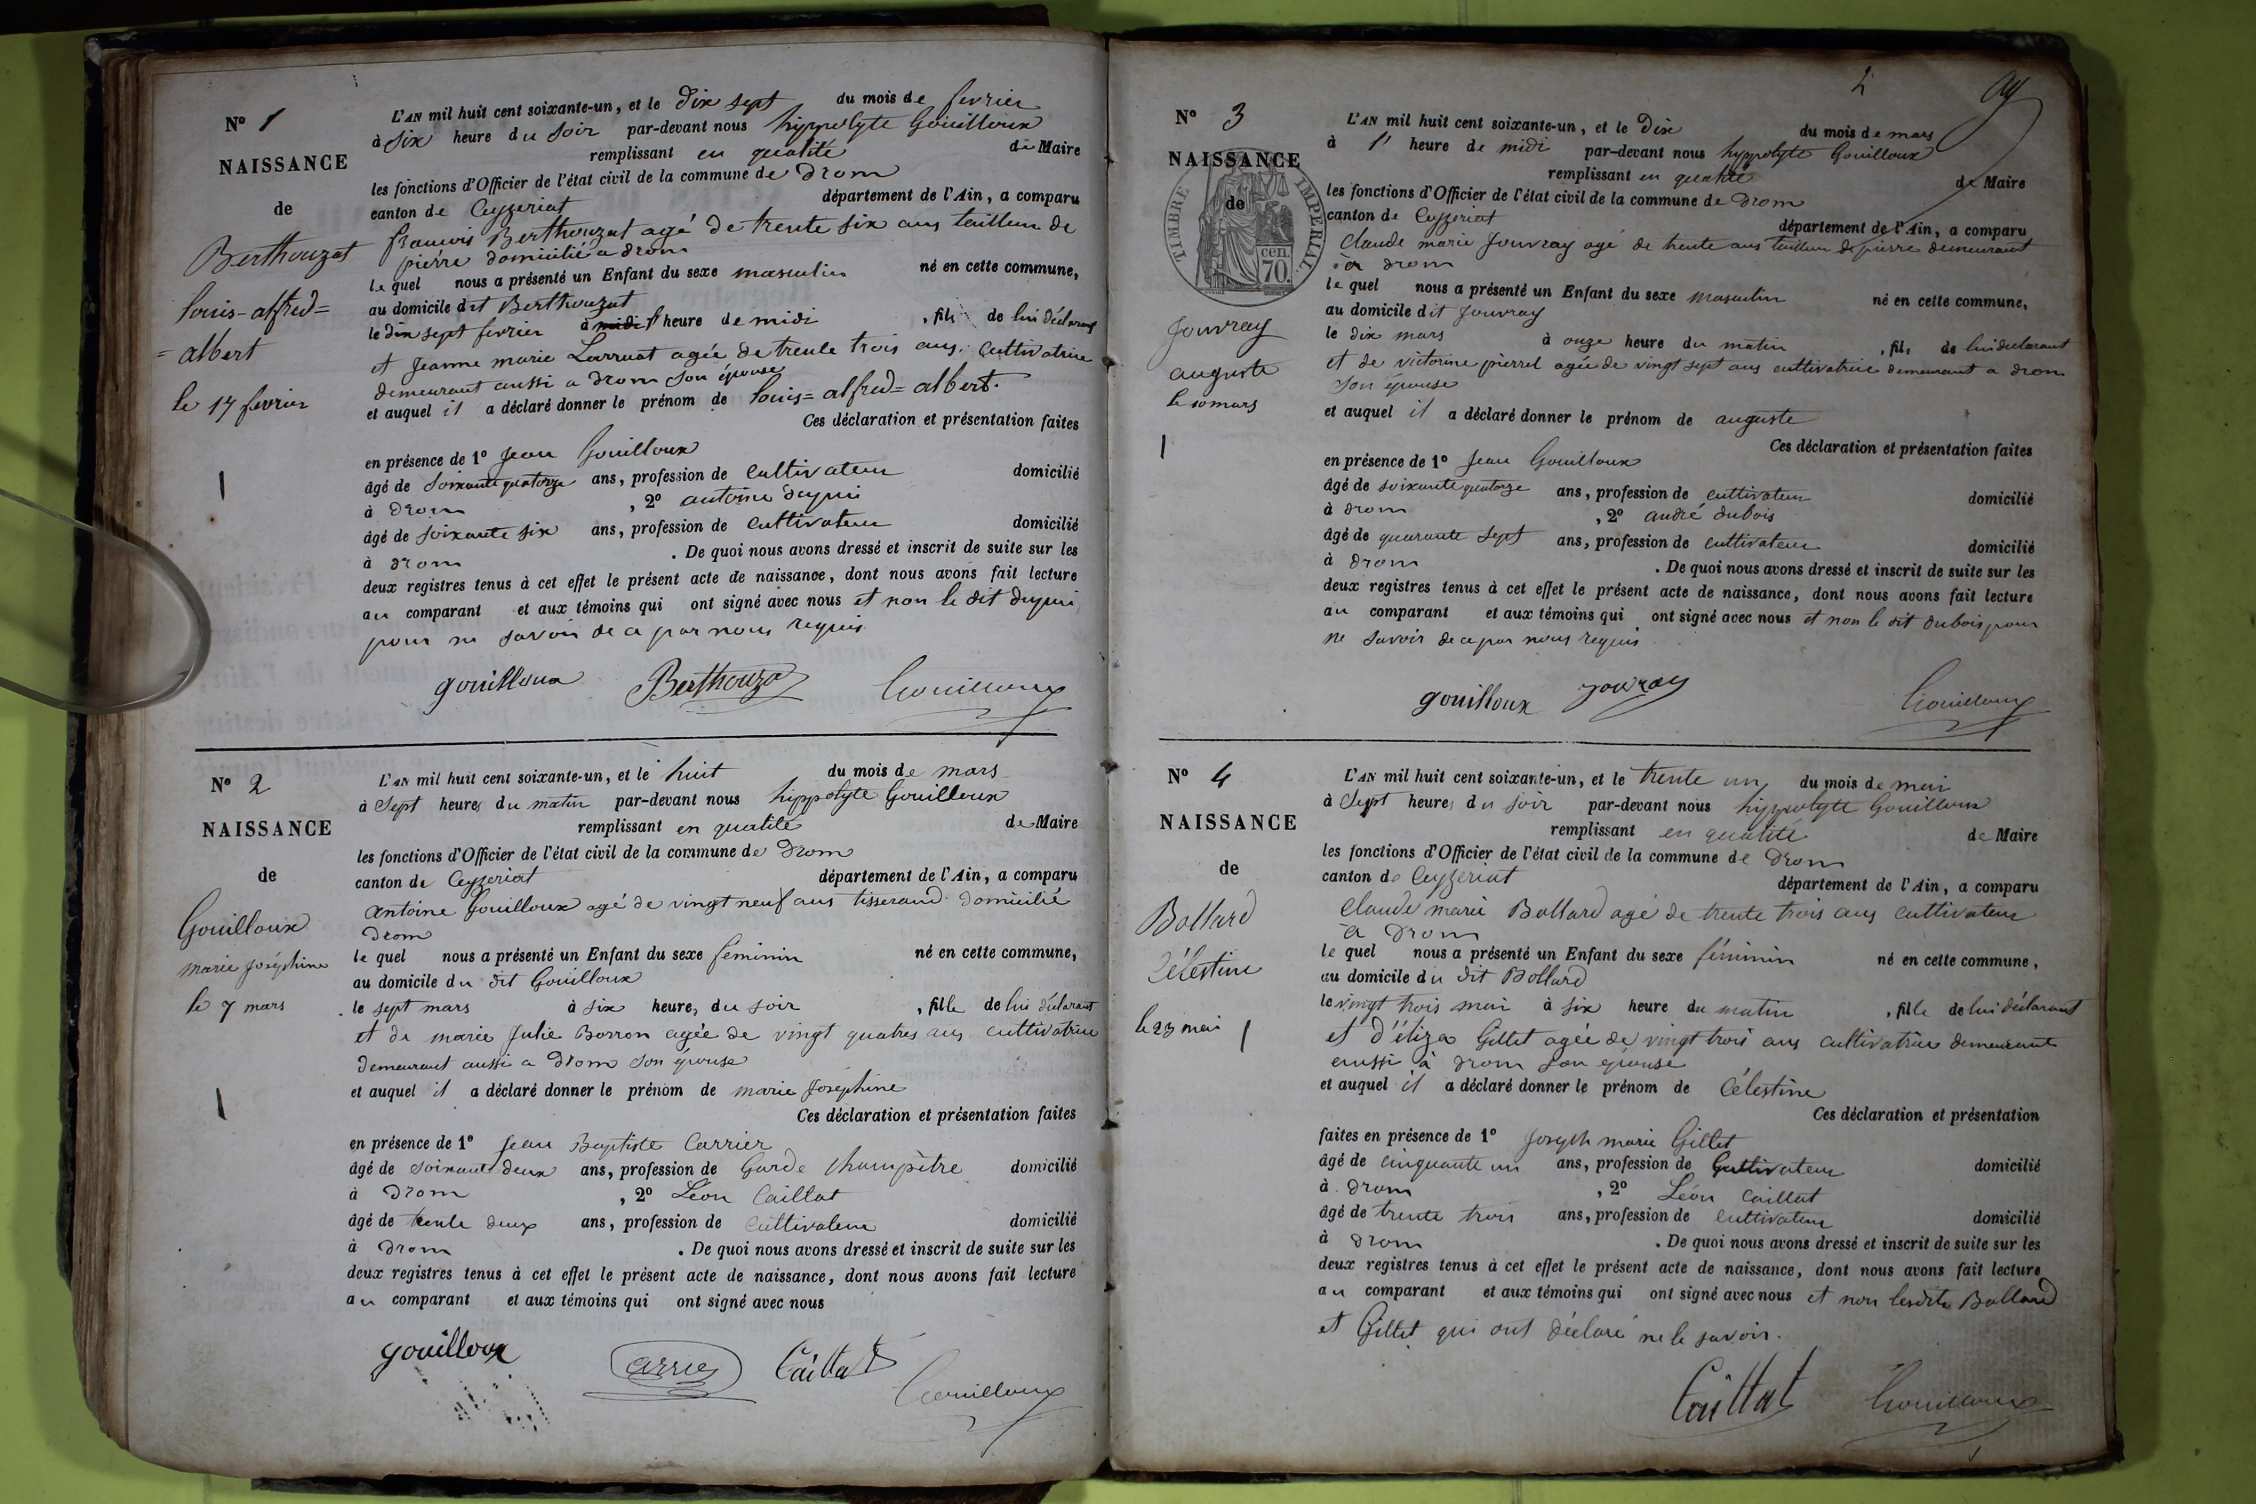 N° 1
NAISSANCE
de
Berthouzat
louis-alfred=
=albert
le 17 fevrier
L'AN mil huit cent soixante-un, et le dix sept du mois de fevrier
à six heure du soir par-devant nous hyppolyte Gouilloux
remplissant en qualité de Maire
les fonctions d'Officier de l'état civil de la commune de drom
canton de Ceyzeriat département de l'Ain, a comparu
francois Berthouzat agé de trente six ans tailleur de
pierre domicilié a drom
le quel nous a présenté un Enfant du sexe masculin né en cette commune,
au domicile dit Berthouzat
le dix sept fevrier à midi 1 heure de midi , fils de lui déclarant
et jeanne marie Larruat agée de trente trois ans, cultivatrice
demeurant aussi a drom son épouse
et auquel il a déclaré donner le prénom de louis=alfred=albert.
Ces déclaration et présentation faites
en présence de 1° jean Gouilloux
âgé de soixante quatorze ans, profession de cultivateur domicilié
à drom , 2° antoine dupui
âgé de soixante six ans, profession de cultivateur domicilié
à drom . De quoi nous avons dressé et inscrit de suite sur les
deux registres tenus à cet effet le présent acte de naissance, dont nous avons fait lecture
au comparant et aux témoins qui ont signé avec nous et non le dit dupui
pour ne savoir de ce par nous requis
gouilloux Berthouzat Gouilloux
N° 2
NAISSANCE
de
Gouilloux
marie joséphine
le 7 mars
L'AN mil huit cent soixante-un, et le huit du mois de mars
à sept heures du matin par-devant nous hippolyte Gouilloux
remplissant en qualité de Maire
les fonctions d'Officier de l'état civil de la commune de drom
canton de Ceyzeriat département de l'Ain, a comparu
antoine Gouilloux agé de vingt neuf ans tisserand domicilié
drom
le quel nous a présenté un Enfant du sexe féminin né en cette commune,
au domicile du dit Gouilloux
le sept mars à six heures du soir , fille de lui déclarant
et de marie julie Borron agée de vingt quatres ans cultivatrice
demeurant aussi a drom son épouse
et auquel il a déclaré donner le prénom de marie joséphine
Ces déclaration et présentation faites
en présence de 1° jean Baptiste Carrier
âgé de soixante deux ans, profession de Garde champêtre domicilié
à drom , 2° Léon Caillat
âgé de trente deux ans, profession de cultivateur domicilié
à drom . De quoi nous avons dressé et inscrit de suite sur les
deux registres tenus à cet effet le présent acte de naissance, dont nous avons fait lecture
au comparant et aux témoins qui ont signé avec nous
gouilloux Carrier Caillat Gouilloux
2
N° 3
NAISSANCE
de
TIMBRE IMPERIAL.
cen.
70.
Jouvray
auguste
le 10 mars
L'AN mil huit cent soixante-un, et le dix du mois de mars
à 1 heure de midi par-devant nous hyppolyte Gouilloux
remplissant en qualité de Maire
les fonctions d'Officier de l'état civil de la commune de drom
canton de Ceyzeriat département de l'Ain, a comparu
Claude marie Jouvray agé de trente ans tailleur de pierre demeurant
à drom
le quel nous a présenté un Enfant du sexe masculin né en cette commune,
au domicile dit Jouvray
le dix mars à onze heure du matin , fils de lui déclarant
et de victorine pierrel agée de vingt sept ans cultivatrice demeurant a drom
son épouse
et auquel il a déclaré donner le prénom de auguste
Ces déclaration et présentation faites
en présence de 1° jean Gouilloux
âgé de soixante quatorze ans, profession de cultivateur domicilié
à drom , 2° andré dubois
âgé de quarante sept ans, profession de cultivateur domicilié
à drom . De quoi nous avons dressé et inscrit de suite sur les
deux registres tenus à cet effet le présent acte de naissance, dont nous avons fait lecture
au comparant et aux témoins qui ont signé avec nous et non le dit dubois pour
ne savoir de ce par nous requis
gouilloux jouvray Gouilloux
N° 4
NAISSANCE
de
Bollard
Célestine
le 23 mai
L'AN mil huit cent soixante-un, et le trente un du mois de mai
à sept heures du soir par-devant nous hyppolyte Gouilloux
remplissant en qualité de Maire
les fonctions d'Officier de l'état civil de la commune de drom
canton de Ceyzeriat département de l'Ain, a comparu
Claude marie Bollard agé de trente trois ans cultivateur
à drom
le quel nous a présenté un Enfant du sexe féminin né en cette commune,
au domicile du dit Bollard
le vingt trois mai à six heure du matin , fille de lui déclarant
et d'éliza Gillet agée de vingt trois ans cultivatrice demeurant
aussi à drom son épouse
et auquel il a déclaré donner le prénom de Célestine
Ces déclaration et présentation
faites en présence de 1° joseph marie Gillet
âgé de cinquante un ans, profession de Cultivateur domicilié
à drom , 2° Léon Caillat
âgé de trente trois ans, profession de cultivateur domicilié
à drom . De quoi nous avons dressé et inscrit de suite sur les
deux registres tenus à cet effet le présent acte de naissance, dont nous avons fait lecture
au comparant et aux témoins qui ont signé avec nous et non lesdits Bollard
et Gillet qui ont déclaré ne le savoir.
Caillat Gouilloux